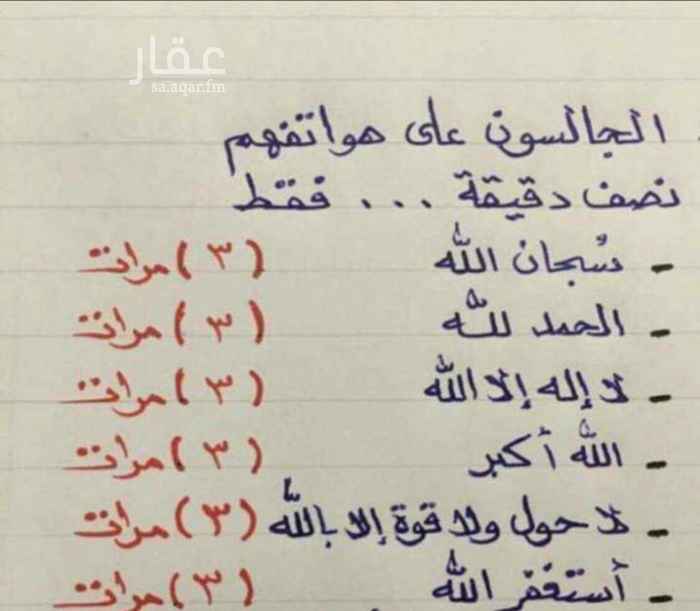 عقار
sa.aqar.fm
الجالسون على هواتفهم
نصف دقيقة ... فقط
- سُبحان الله (٣) مرات
- الحمد لله (٣) مرات
- لا إله إلا الله (٣) مرات
- الله أكبر (٣) مرات
- لا حول ولا قوة إلا بالله (٣) مرات
- أستغفر الله (٣) مرات